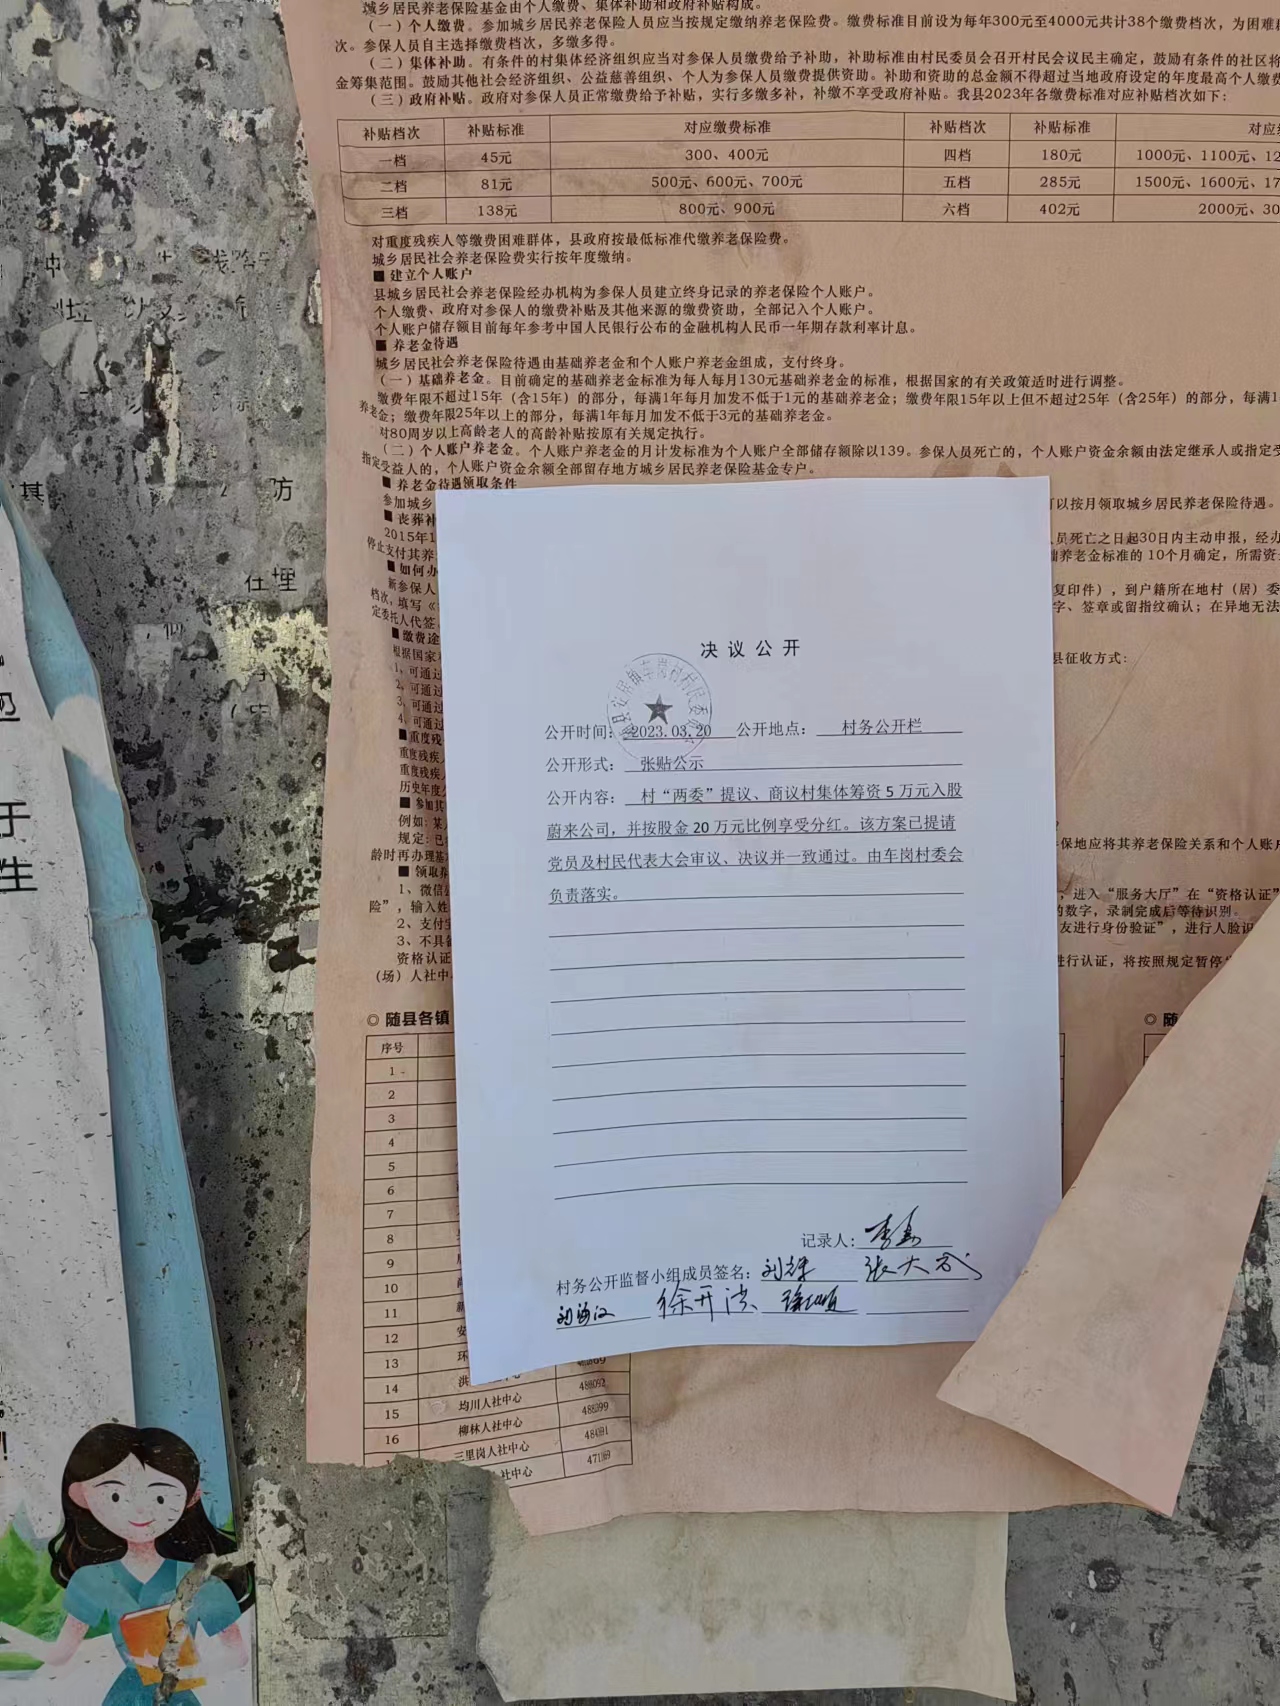 城乡居民养老保险基金由个人缴费、集体补助和政府补贴构成。
（一）个人缴费。参加城乡居民养老保险人员应当按规定缴纳养老保险费。缴费标准目前设为每年300元至4000元共计38个缴费档次，为困难
次。参保人员自主选择缴费档次，多缴多得。
（二）集体补助。有条件的村集体经济组织应当对参保人员缴费给予补助，补助标准由村民委员会召开村民会议民主确定，鼓励有条件的社区将
金筹集范围。鼓励其他社会经济组织、公益慈善组织、个人为参保人员缴费提供资助。补助和资助的总金额不得超过当地政府设定的年度最高个人缴费
（三）政府补贴。政府对参保人员正常缴费给予补贴，实行多缴多补，补缴不享受政府补贴。我县2023年各缴费标准对应补贴档次如下：
补贴档次 补贴标准 对应缴费标准 补贴档次 补贴标准 对应
一档 45元 300、400元 四档 180元 1000元、1100元、12
二档 81元 500元、600元、700元 五档 285元 1500元、1600元、17
三档 138元 800元、900元 六档 402元 2000元、30
对重度残疾人等缴费困难群体，县政府按最低标准代缴养老保险费。
城乡居民社会养老保险费实行按年度缴纳。
■ 建立个人账户
县城乡居民社会养老保险经办机构为参保人员建立终身记录的养老保险个人账户。
个人缴费、政府对参保人的缴费补贴及其他来源的缴费资助，全部记入个人账户。
个人账户储存额目前每年参考中国人民银行公布的金融机构人民币一年期存款利率计息。
■ 养老金待遇
城乡居民社会养老保险待遇由基础养老金和个人账户养老金组成，支付终身。
（一）基础养老金。目前确定的基础养老金标准为每人每月130元基础养老金的标准，根据国家的有关政策适时进行调整。
缴费年限不超过15年（含15年）的部分，每满1年每月加发不低于1元的基础养老金；缴费年限15年以上但不超过25年（含25年）的部分，每满1
养老金；缴费年限25年以上的部分，每满1年每月加发不低于3元的基础养老金。
对80周岁以上高龄老人的高龄补贴按原有关规定执行。
（二）个人账户养老金。个人账户养老金的月计发标准为个人账户全部储存额除以139。参保人员死亡的，个人账户资金余额由法定继承人或指定受
指定受益人的，个人账户资金余额全部留存地方城乡居民养老保险基金专户。
■ 养老金待遇领取条件
参加城乡 可以按月领取城乡居民养老保险待遇。
■ 丧葬补
2015年1 员死亡之日起30日内主动申报，经办
停止支付其养 础养老金标准的10个月确定，所需资
■ 如何办
新参保人 复印件），到户籍所在地村（居）委
档次，填写《 字、签章或留指纹确认；在异地无法
定委托人代签
■ 缴费途
根据国家 县征收方式：
1、可通过
2、可通过
3、可通过
4、可通过
■ 重度残
重度残疾
重度残疾
历史年度
■ 参加其
例如：某
规定：已 保地应将其养老保险关系和个人账户
龄时再办理基
■ 领取养
1、微信 ，进入“服务大厅”在“资格认证”
险”，输入姓 的数字，录制完成后等待识别。
2、支付宝 友进行身份验证”，进行人脸识
3、不具备
资格认证 进行认证，将按照规定暂停
（场）人社中
◎ 随县各镇 ◎ 随
序号
1
2
3
4
5
6
7
8
9
10
11
12 安
13 环
14 洪 488092
15 均川人社中心 488099
16 柳林人社中心
三里岗人社中心
社中心
决议公开
安居镇车岗村村民委员会
公开时间：2023.03.20 公开地点：村务公开栏
公开形式：张贴公示
公开内容：村“两委”提议、商议村集体筹资5万元入股
蔚来公司，并按股金20万元比例享受分红。该方案已提请
党员及村民代表大会审议、决议并一致通过。由车岗村委会
负责落实。
记录人：
村务公开监督小组成员签名：刘锋
刘海汉 徐开洪
防
在埋
于
生